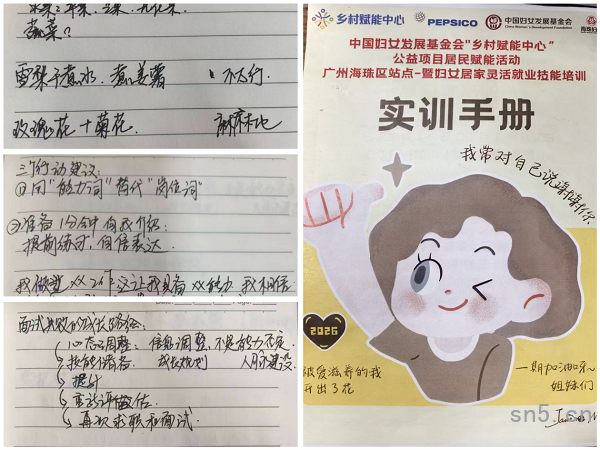 雪梨干煮水、煮姜薯 不太行
玫瑰花+菊花
三行动建议:
①用"能力词"替代"岗位词"
②准备1分钟自我介绍:
提前练习,自信表达.
面试失败的成长路径:
心态调整: 信息调整,不是能力不足.
技能储备: 成长规划 人脉建设.
提升
重新评估
再次求职和面试
乡村赋能中心
PEPSICO
中国妇女发展基金会
China Women's Development Foundation
中国妇女发展基金会"乡村赋能中心"
公益项目居民赋能活动
广州海珠区站点-暨妇女居家灵活就业技能培训
实训手册
我常对自己说
2026
被爱滋养的我
开出了花
一期加油呀~
姐妹们
sn5.cn